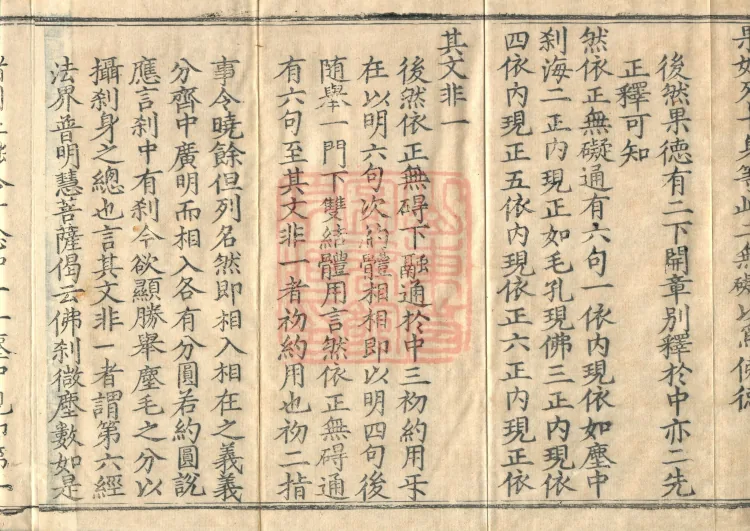 後然果德有二下開章別釋於中亦二先
正釋可知
然依正無礙通有六句一依內現依如塵中
刹海二正內現正如毛孔現佛三正內現依
四依內現正五依內現依正六正內現正依
其文非一
後然依正無碍下融通於中三初約用㸦
在以明六句次約體相相即以明四句後
隨舉一門下雙結體用言然依正無碍通
有六句至其文非一者初約用也初二指
事令曉餘但列名然即相入相在之義義
分齊中廣明而相入各有分圓若約圓說
應言刹中有刹今欲顯勝舉塵毛之分以
攝刹身之總也言其文非一者謂第六經
法界普明慧菩薩偈云佛刹微塵數如是